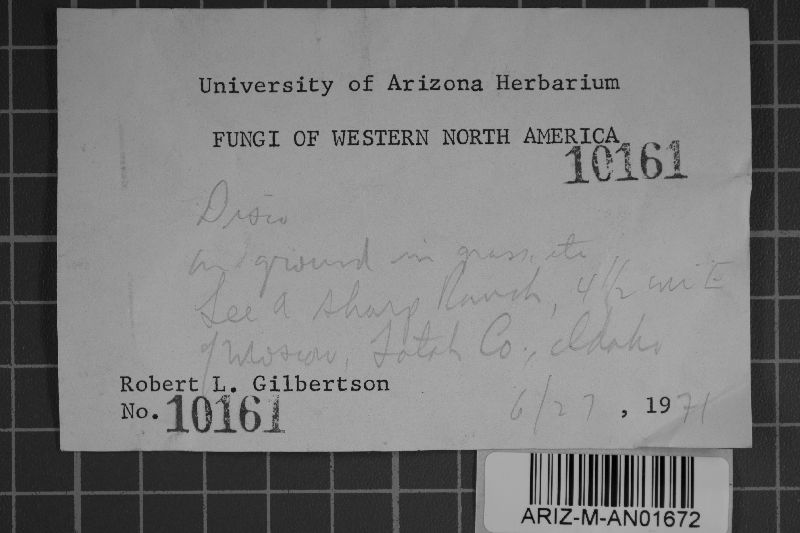 University of Arizona Herbarium
FUNGI OF WESTERN NORTH AMERICA
10161
Disco
on ground in grass, etc
Lee A Sharp Ranch, 4 1/2 mi E
of Moscow, Latah Co., Idaho
Robert L. Gilbertson
No. 10161
6/27, 1971
ARIZ-M-AN01672